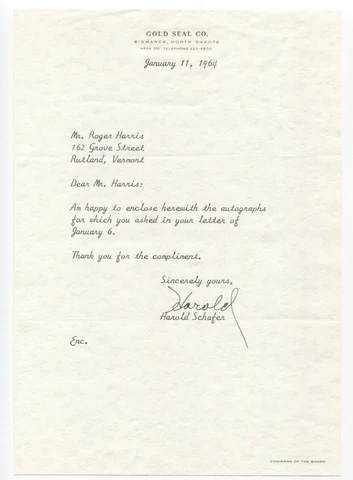 GOLD SEAL CO.
BISMARCK, NORTH DAKOTA
AREA 701 TELEPHONE 223-4800
January 11, 1964
Mr. Roger Harris
162 Grove Street
Rutland, Vermont
Dear Mr. Harris:
Am happy to enclose herewith the autographs
for which you asked in your letter of
January 6.
Thank you for the compliment.
Sincerely yours,
Harold
Harold Schafer
Enc.
CHAIRMAN OF THE BOARD